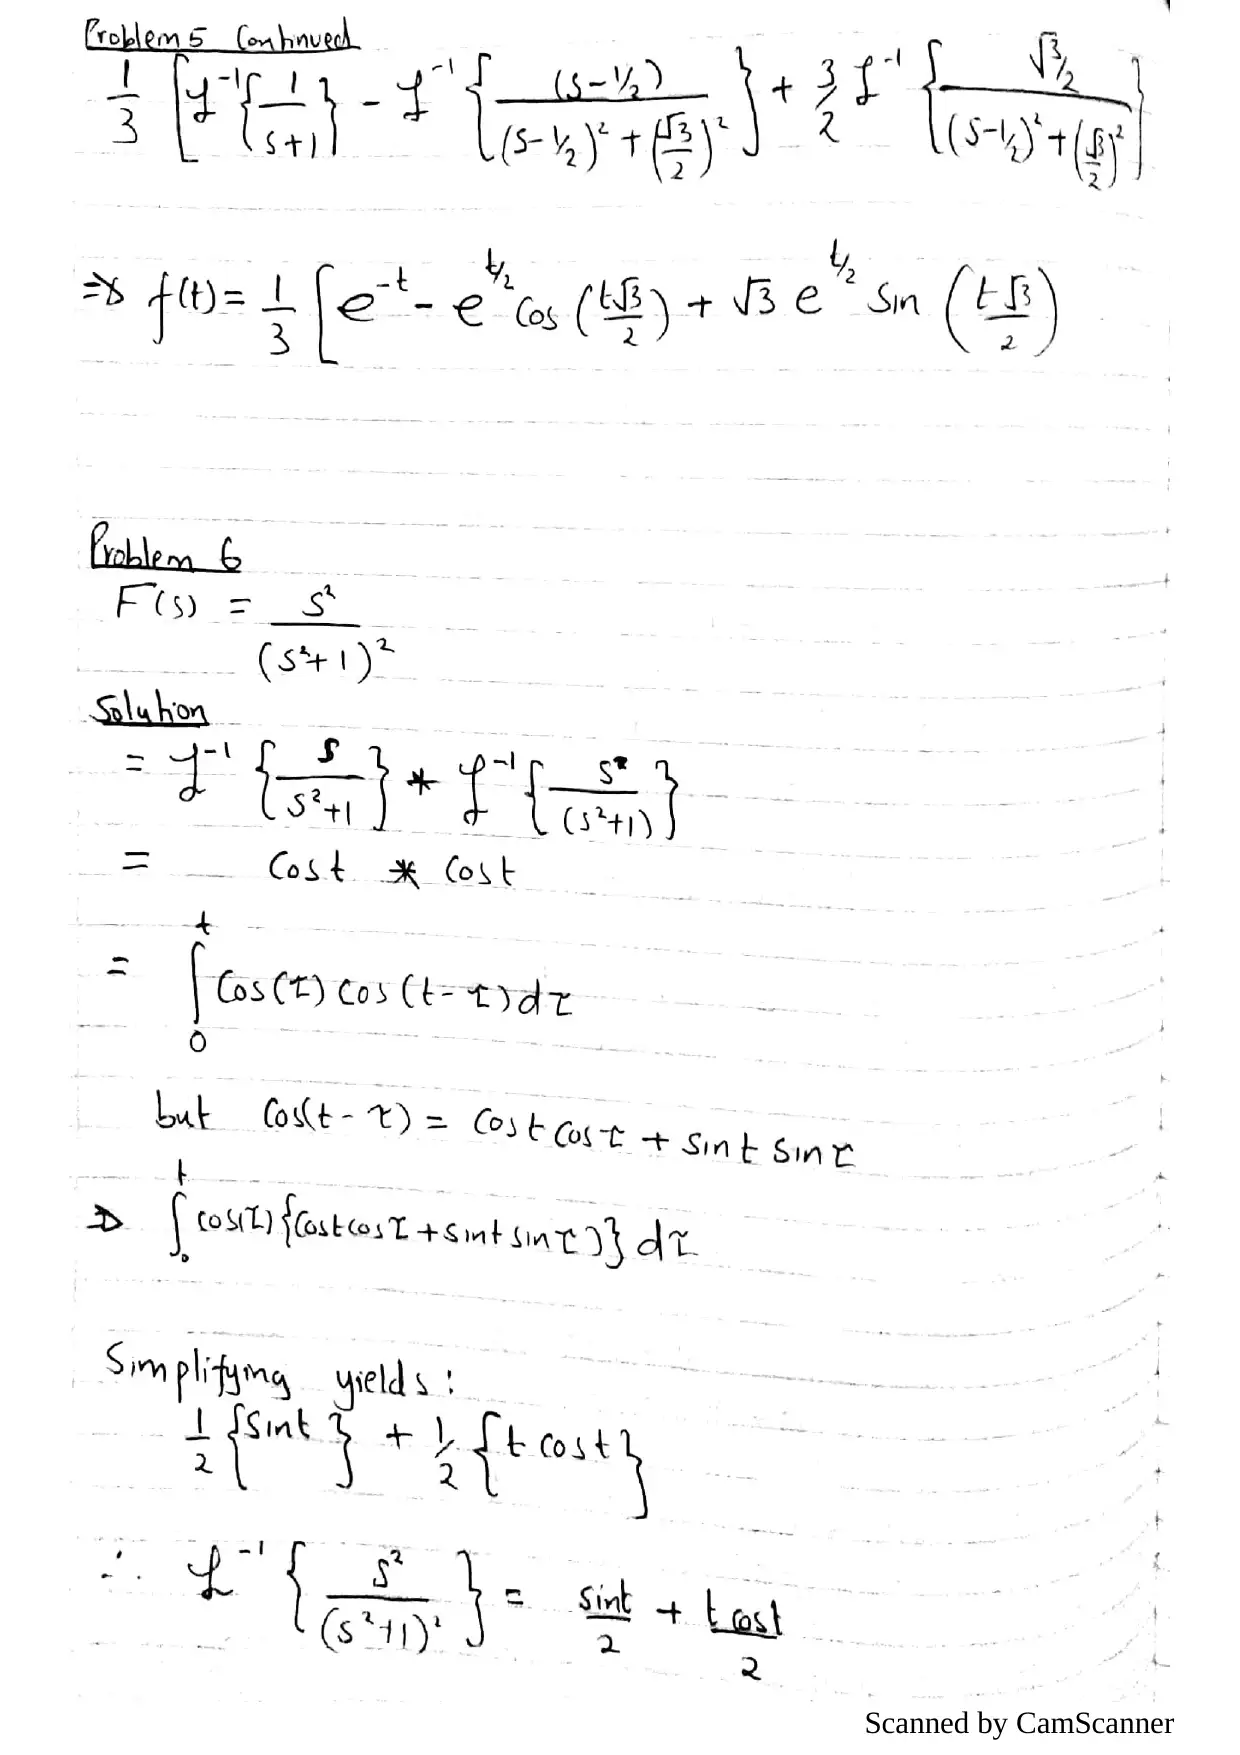 Problem 5 Continued
1/3 [ ℒ⁻¹{ 1/(s+1) } - ℒ⁻¹{ (s-1/2) / ((s-1/2)² + (√3/2)²) } + 3/2 ℒ⁻¹{ √3/2 / ((s-1/2)² + (√3/2)²) }
⇒ f(t) = 1/3 [ e^(-t) - e^(t/2) Cos (t√3/2) + √3 e^(t/2) Sin (t√3/2)
Problem 6
F(s) = s² / (s²+1)²
Solution
= ℒ⁻¹{ s/(s²+1) } * ℒ⁻¹{ s/(s²+1) }
= Cost * Cost
= ∫₀ᵗ Cos(τ) Cos(t-τ)dτ
but Cos(t-τ) = Cost Cosτ + Sint Sinτ
⇒ ∫₀ᵗ cos(τ){Costcosτ + sint sinτ)} dτ
Simplifying yields:
1/2 {Sint} + 1/2 {t cost}
∴ ℒ⁻¹{ s²/(s²+1)² } = sint/2 + t cost/2
Scanned by CamScanner